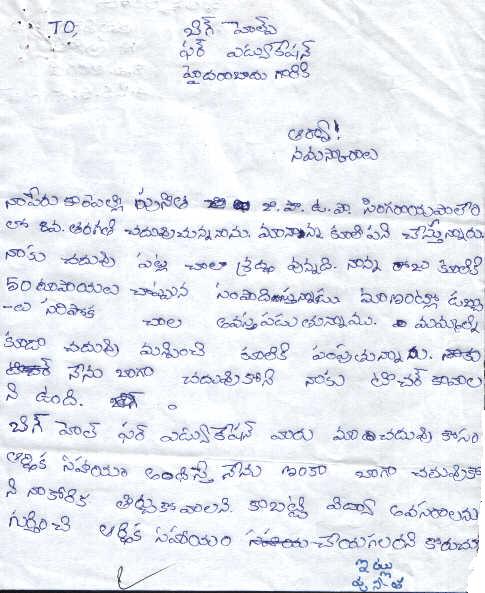 TO,
బిగ్ హెల్ప్
ఫర్ ఎడ్యుకేషన్
హైదరాబాదు గారికి
ఆర్యా!
నమస్కారాలు
నాపేరు కారంపెల్లి పునీత జి. పా. ఉ. పా. సింగరాయపాలెం
లో 8వ. తరగతి చదువుచున్నాను. మానాన్న కూలిపని చేస్తున్నారు
నాకు చదువు పట్ల చాలా శ్రద్ధ ఉన్నది. నాన్న రోజు కూలికి
50 రూపాయలు చొప్పున సంపాదిస్తున్నాడు మాఇంట్లో డబ్బు
-లు సరిపోక చాల అవస్తపడుతున్నాము. మమ్మల్ని
కూడా చదువు మన్పించి కూలికి పంపుతున్నారు. నాకు
నేను బాగా చదువుకోని నాకు టీచర్ కావాల
ని ఉంది.
బిగ్ హెల్ప్ ఫర్ ఎడ్యుకేషన్ వారు మా చదువు కోసం
ఆర్థిక సహాయం అందిస్తే నేను ఇంకా బాగా చదువుకో
ని నాకోరిక తీర్చుకోవాలని. కాబట్టి విద్యా అవసరాలను
గుర్తించి ఆర్థిక సహాయం చేయగలరని కోరుచూ
ఇట్లు
పునీత